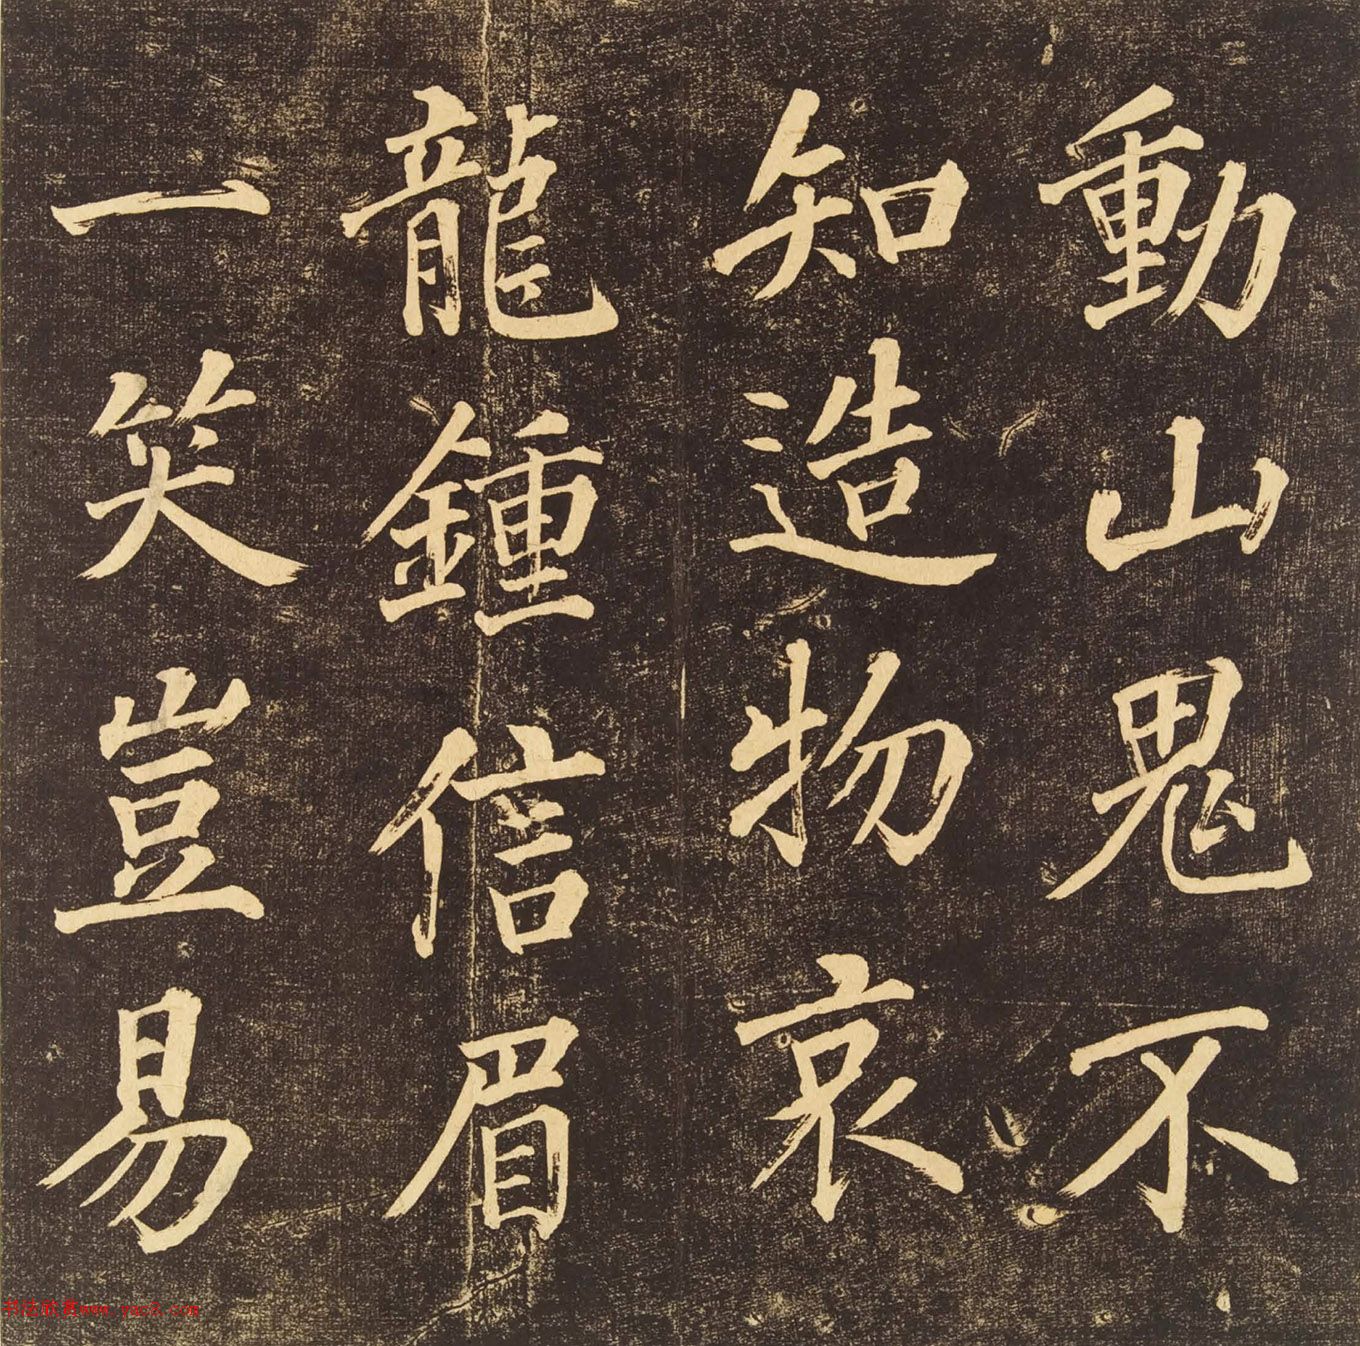 動山鬼不
知造物哀
龍鍾信眉
一笑豈易
书法欣赏www.yac8.com